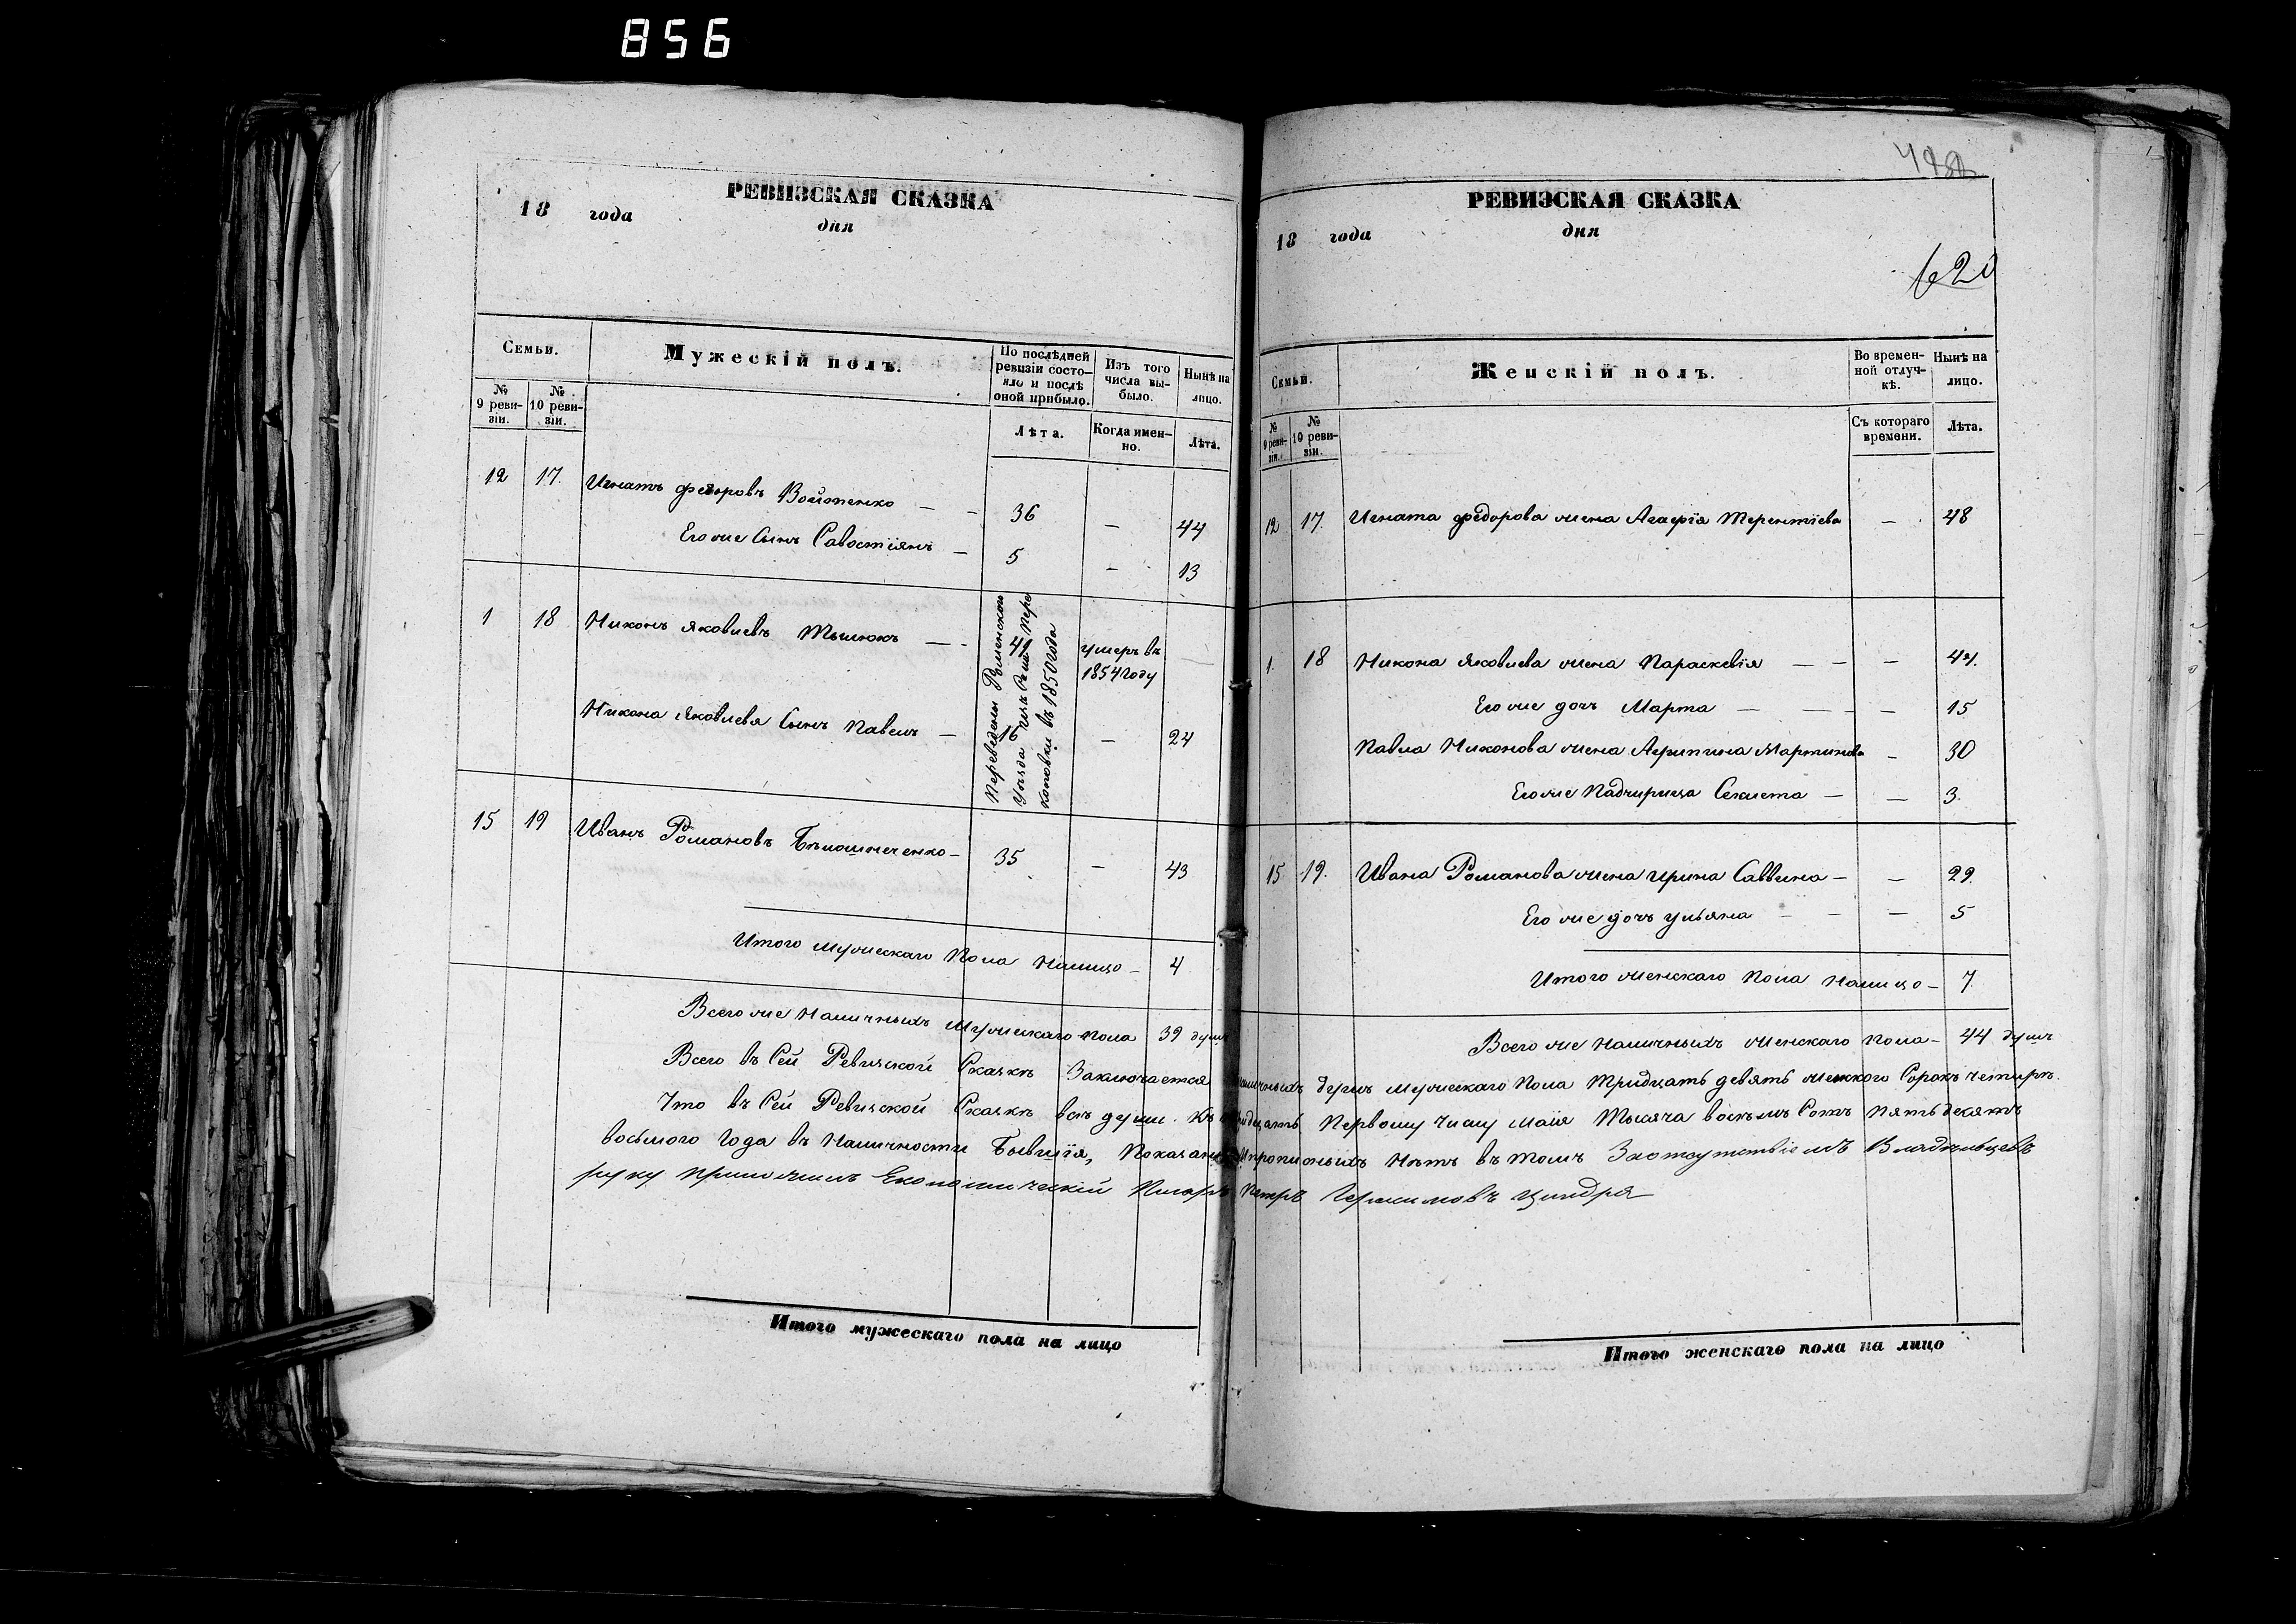 856
РЕВИЗСКАЯ СКАЗКА
18 года дня
Семьи.
Мужескій полъ.
По послѣдней ревизіи состояло и послѣ оной прибыло.
Изъ того числа выбыло.
Нынѣ на лицо.
№ 9 ревизіи.
№ 10 ревизіи.
Лѣта.
Когда именно.
Лѣта.
12 17. Игнатъ Федоровъ Войтенко — — 36 — 44
Его же Сынъ Савостіянъ — 5 — 13
1 18 Никонъ Яковлевъ — 41 умеръ въ 1854 году —
Никона Яковлева Сынъ Павелъ — 16 — 24
Переведены Роменского
Уѣзда изъ Пере
коповки въ 1850 года
15 19 Иванъ Романовъ — 35 — 43
Итого мужескаго Пола Налицо — 4
Всего же Наличныхъ Мужескаго пола 39 душъ
РЕВИЗСКАЯ СКАЗКА
18 года дня
620
Семьи.
Женскій полъ.
Во временной отлучкѣ.
Нынѣ на лицо.
№ 9 ревизіи.
№ 10 ревизіи.
Съ котораго времени.
Лѣта.
12 17. Игната Федорова жена Агафія Терентіева — 48
1. 18 Никона Яковлева жена Параскевія — — —
Его же дочь Марта — — — — 15
Павла Никонова жена Агрипина Мартинова — 30
Его же Падчирица Секлета — — 3.
15 19. Ивана Романова жена Ирина Саввина — — 29.
Его же дочь Ульяна — — — 5
Итого женскаго Пола Налицо — 7.
Всего же Наличныхъ Женскаго Пола — 44 душъ
Всего въ Сей Ревизской Сказкѣ Заключается Наличныхъ душъ мужескаго Пола тридцать девять женского Сорокъ четыре.
Что въ Сей Ревизской Сказкѣ всѣ души Первому Числу маія Тысяча восѣмъ Сотъ Пятьдесятъ
восьмого Года въ Наличности Бывшія, Показаны Ипрописныхъ Нѣтъ въ томъ Заотсутствіемъ Владѣльцевъ
руку приложилъ Економическій Писарь Петръ Герасимовъ Циндря
Итого мужескаго пола на лицо
Итого женскаго пола на лицо